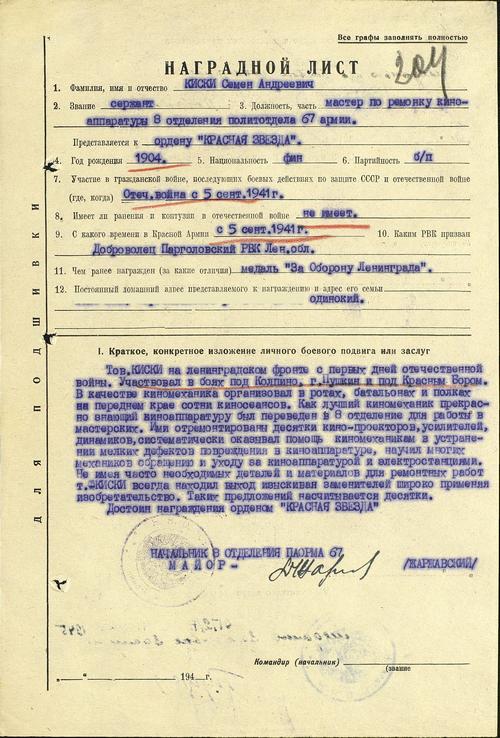 Все графы заполнять полностью
204
НАГРАДНОЙ ЛИСТ
1. Фамилия, имя и отчество КИСКИ Семен Андреевич
2. Звание сержант 3. Должность, часть мастер по ремонку кино-
аппаратуры 8 отделения политотдела 67 армии.
Представляется к ордену "КРАСНАЯ ЗВЕЗДА".
4. Год рождения 1904. 5. Национальность фин 6. Партийность б/п
7. Участие в гражданской войне, последующих боевых действиях по защите СССР и отечественной войне
(где, когда) Отеч.война с 5 сент.1941г.
8. Имеет ли ранения и контузии в отечественной войне не имеет.
9. С какого времени в Красной Армии с 5 сент.1941г. 10. Каким РВК призван
Доброволец Парголовский РВК Лен.обл.
11. Чем ранее награжден (за какие отличия) медаль "За Оборону Ленинграда".
12. Постоянный домашний адрес представляемого к награждению и адрес его семьи
одинокий.
I. Краткое, конкретное изложение личного боевого подвига или заслуг
Тов.КИСКИ на ленинградском фронте с первых дней отечественной
войны. Участвовал в боях под Колпино, г.Пушкин и под Красным Бором.
В качестве киномеханика организовал в ротах, батальонах и полках
на переднем крае сотни киносеансов. Как лучший киномеханик прекрас-
но знающий киноаппаратуру был переведен в 8 отделение для работы в
мастерских. Ими отремонтированы десятки кино-проекторов,усилителей,
динамиков,систематически оказывал помощь киномеханикам в устране-
нии мелких дефектов повреждения в киноаппаратуре, научил многих
механиков обращению и уходу за киноаппаратурой и электростанциями.
Не имея часто необходимых деталей и материалов для ремонтных работ
т.КИСКИ всегда находил выход изыскивая заменителей широко применяя
изобретательство. Таких предложений насчитывается десятки.
Достоин награждения орденом "КРАСНАЯ ЗВЕЗДА"
НАЧАЛЬНИК 8 ОТДЕЛЕНИЯ ПАОРМА 67
МАЙОР - /ЖАРНАВСКИЙ/
Командир (начальник)
(звание
„ “ 194 г.
ДЛЯ ПОДШИВКИ